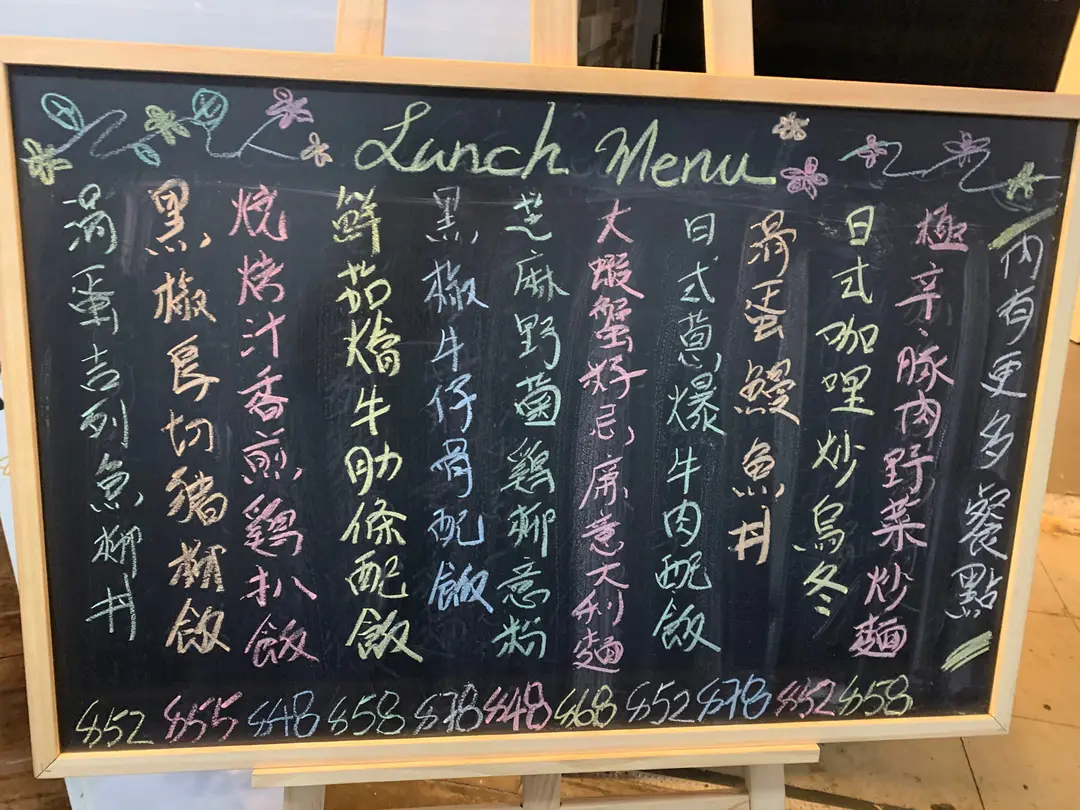 Lunch Menu
滑蛋吉列魚柳丼
黑椒厚切豬柳飯
燒烤汁香煎鷄扒飯
鮮茄燴牛肋條配飯
黑椒牛仔骨配飯
芝麻野菌鷄柳意粉
大蝦蟹籽忌廉意大利麵
日式蔥爆牛肉配飯
滑蛋鰻魚丼
日式咖哩炒烏冬
極辛、豚肉野菜炒麵
內有更多餐點
$52 $55 $48 $58 $78 $48 $68 $52 $78 $52 $58